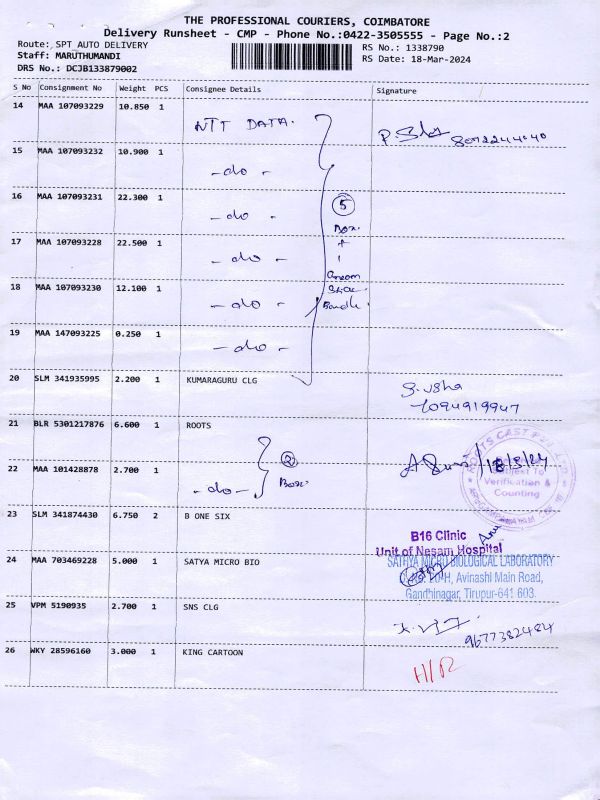 THE PROFESSIONAL COURIERS, COIMBATORE
Delivery Runsheet - CMP - Phone No.:0422-3505555 - Page No.:2
Route: SPT AUTO DELIVERY
Staff: MARUTHUMANDI
DRS No.: DCJB133879002
RS No.: 1338790
RS Date: 18-Mar-2024
S No Consignment No Weight PCS Consignee Details Signature
14 MAA 107093229 10.850 1 NTT DATA.
8072244040
15 MAA 107093232 10.900 1 -do-
16 MAA 107093231 22.300 1 -do-
17 MAA 107093228 22.500 1 -do-
18 MAA 107093230 12.100 1 -do-
19 MAA 147093225 0.250 1 -do-
5
Box.
+
1
20 SLM 341935995 2.200 1 KUMARAGURU CLG
S. Usha
7094919947
21 BLR 5301217876 6.600 1 ROOTS
22 MAA 101428878 2.700 1 -do-
2
Box.
18/3/24
ROOTS CAST PVT LTD
Subject To
Verification &
Counting
23 SLM 341874430 6.750 2 B ONE SIX
B16 Clinic
Unit of Nesam Hospital
24 MAA 703469228 5.000 1 SATYA MICRO BIO
SATHYA MICRO BIOLOGICAL LABORATORY
Avinashi Main Road,
Gandhinagar, Tirupur-641 603.
25 VPM 5190935 2.700 1 SNS CLG
9677382484
26 WKY 28596160 3.000 1 KING CARTOON
H/R